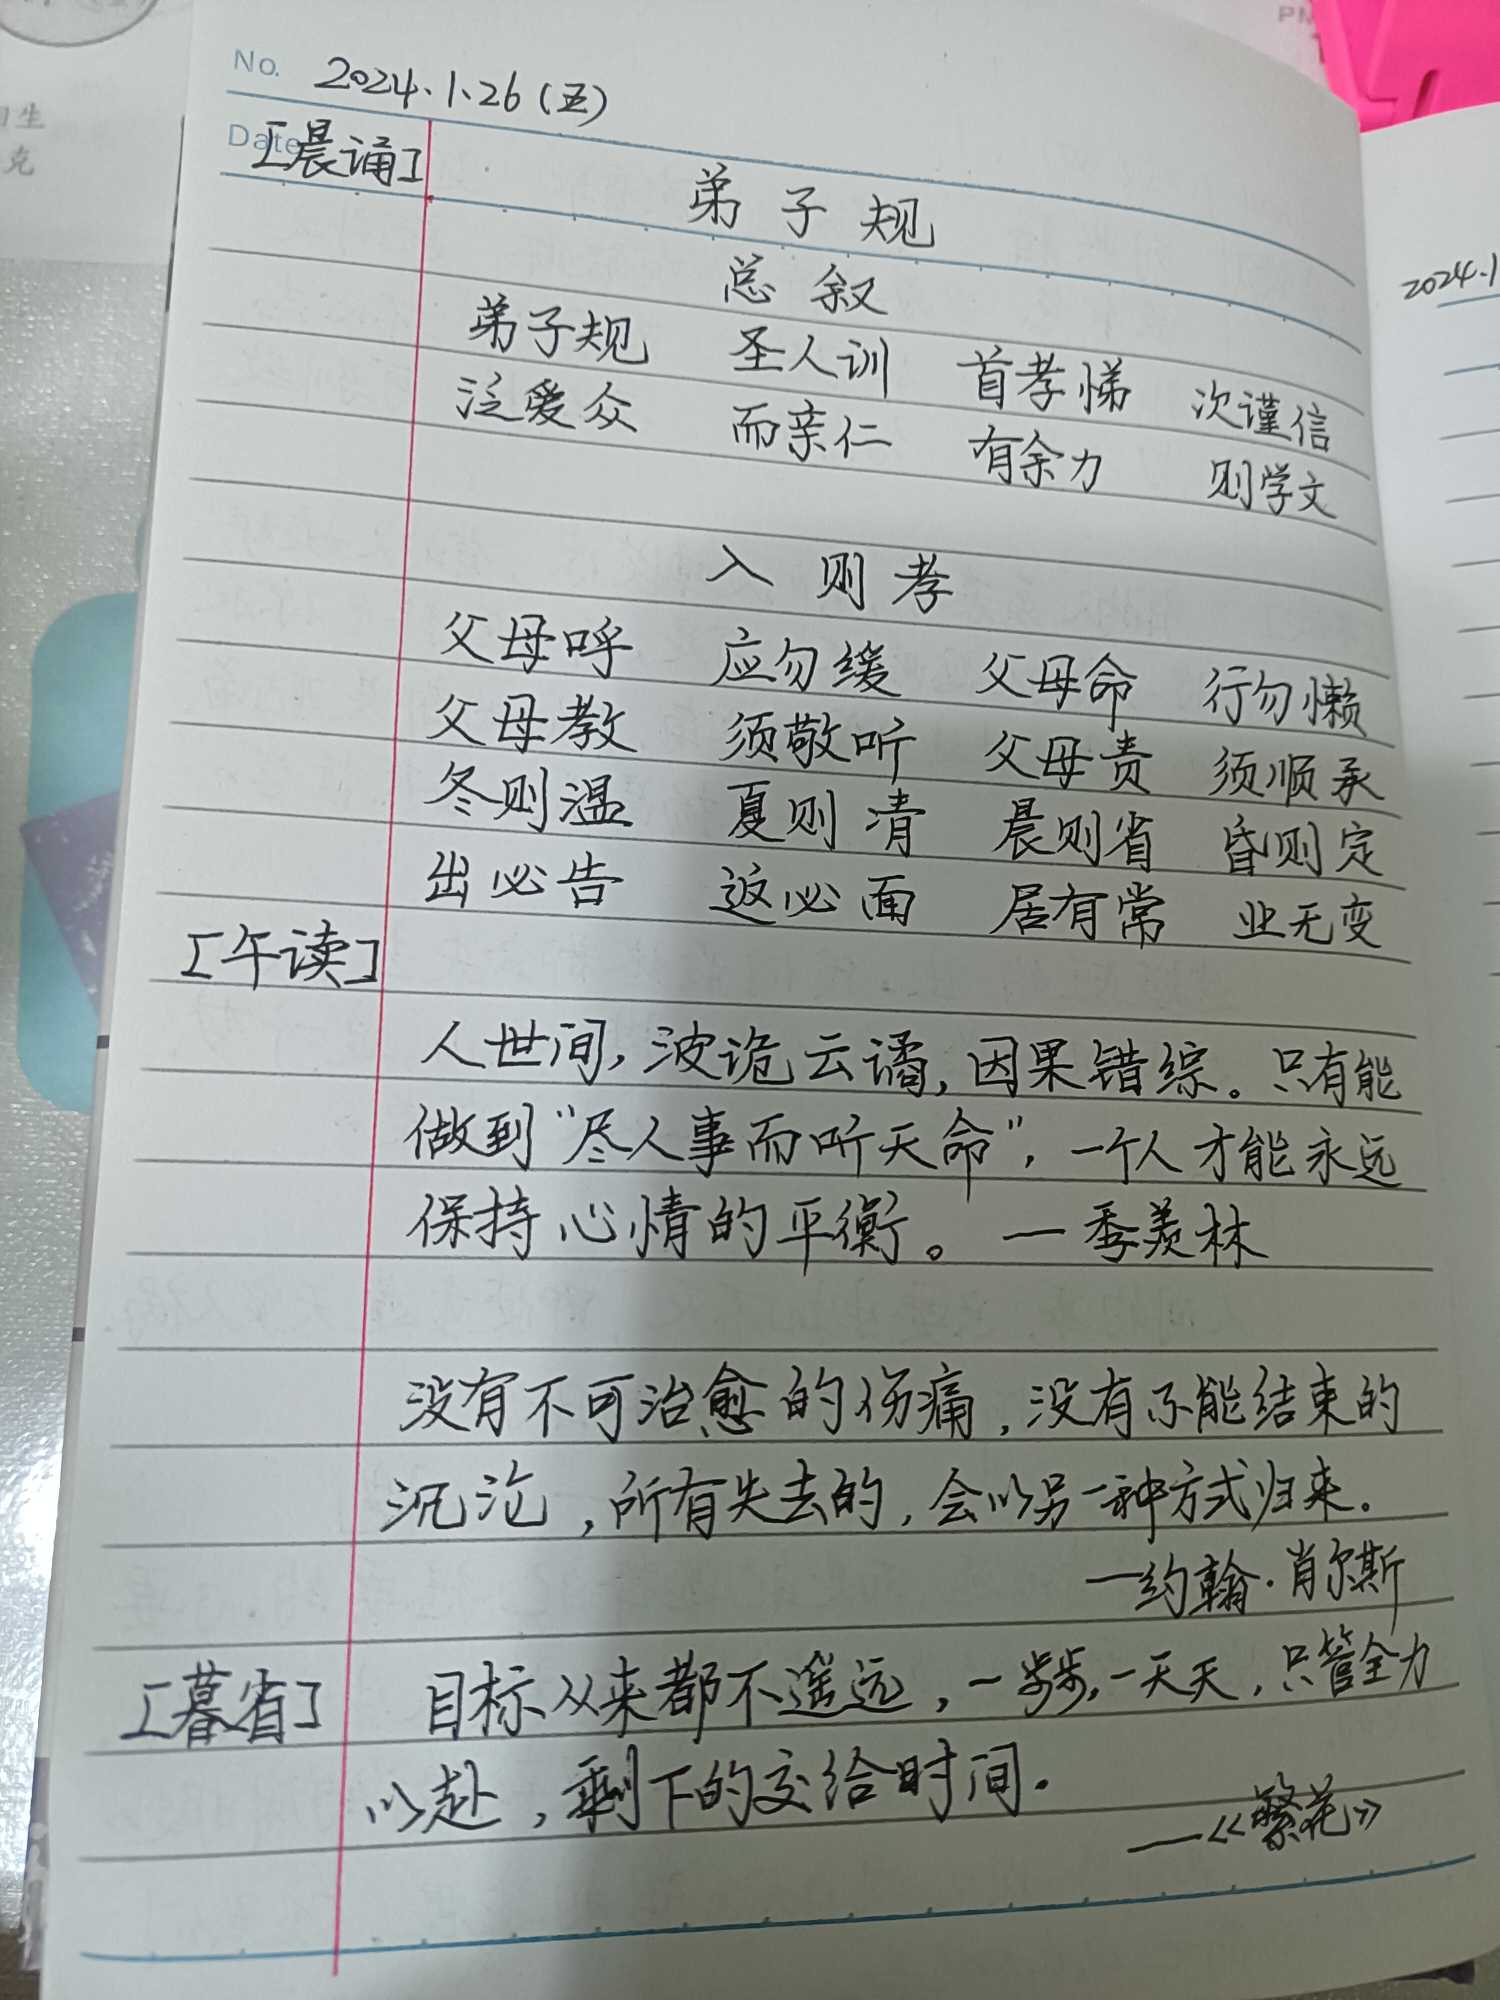 No. 2024.1.26(五)
Date [晨诵]
弟子规
总叙
弟子规 圣人训 首孝悌 次谨信
泛爱众 而亲仁 有余力 则学文
入则孝
父母呼 应勿缓 父母命 行勿懒
父母教 须敬听 父母责 须顺承
冬则温 夏则凊 晨则省 昏则定
出必告 返必面 居有常 业无变
[午读]
人世间,波诡云谲,因果错综。只有能
做到“尽人事而听天命”,一个人才能永远
保持心情的平衡。—季羡林
没有不可治愈的伤痛,没有不能结束的
沉沦,所有失去的,会以另一种方式归来。
—约翰·肖尔斯
[暮省] 目标从来都不遥远,一步步,一天天,只管全力
以赴,剩下的交给时间。
——《繁花》
2024.1